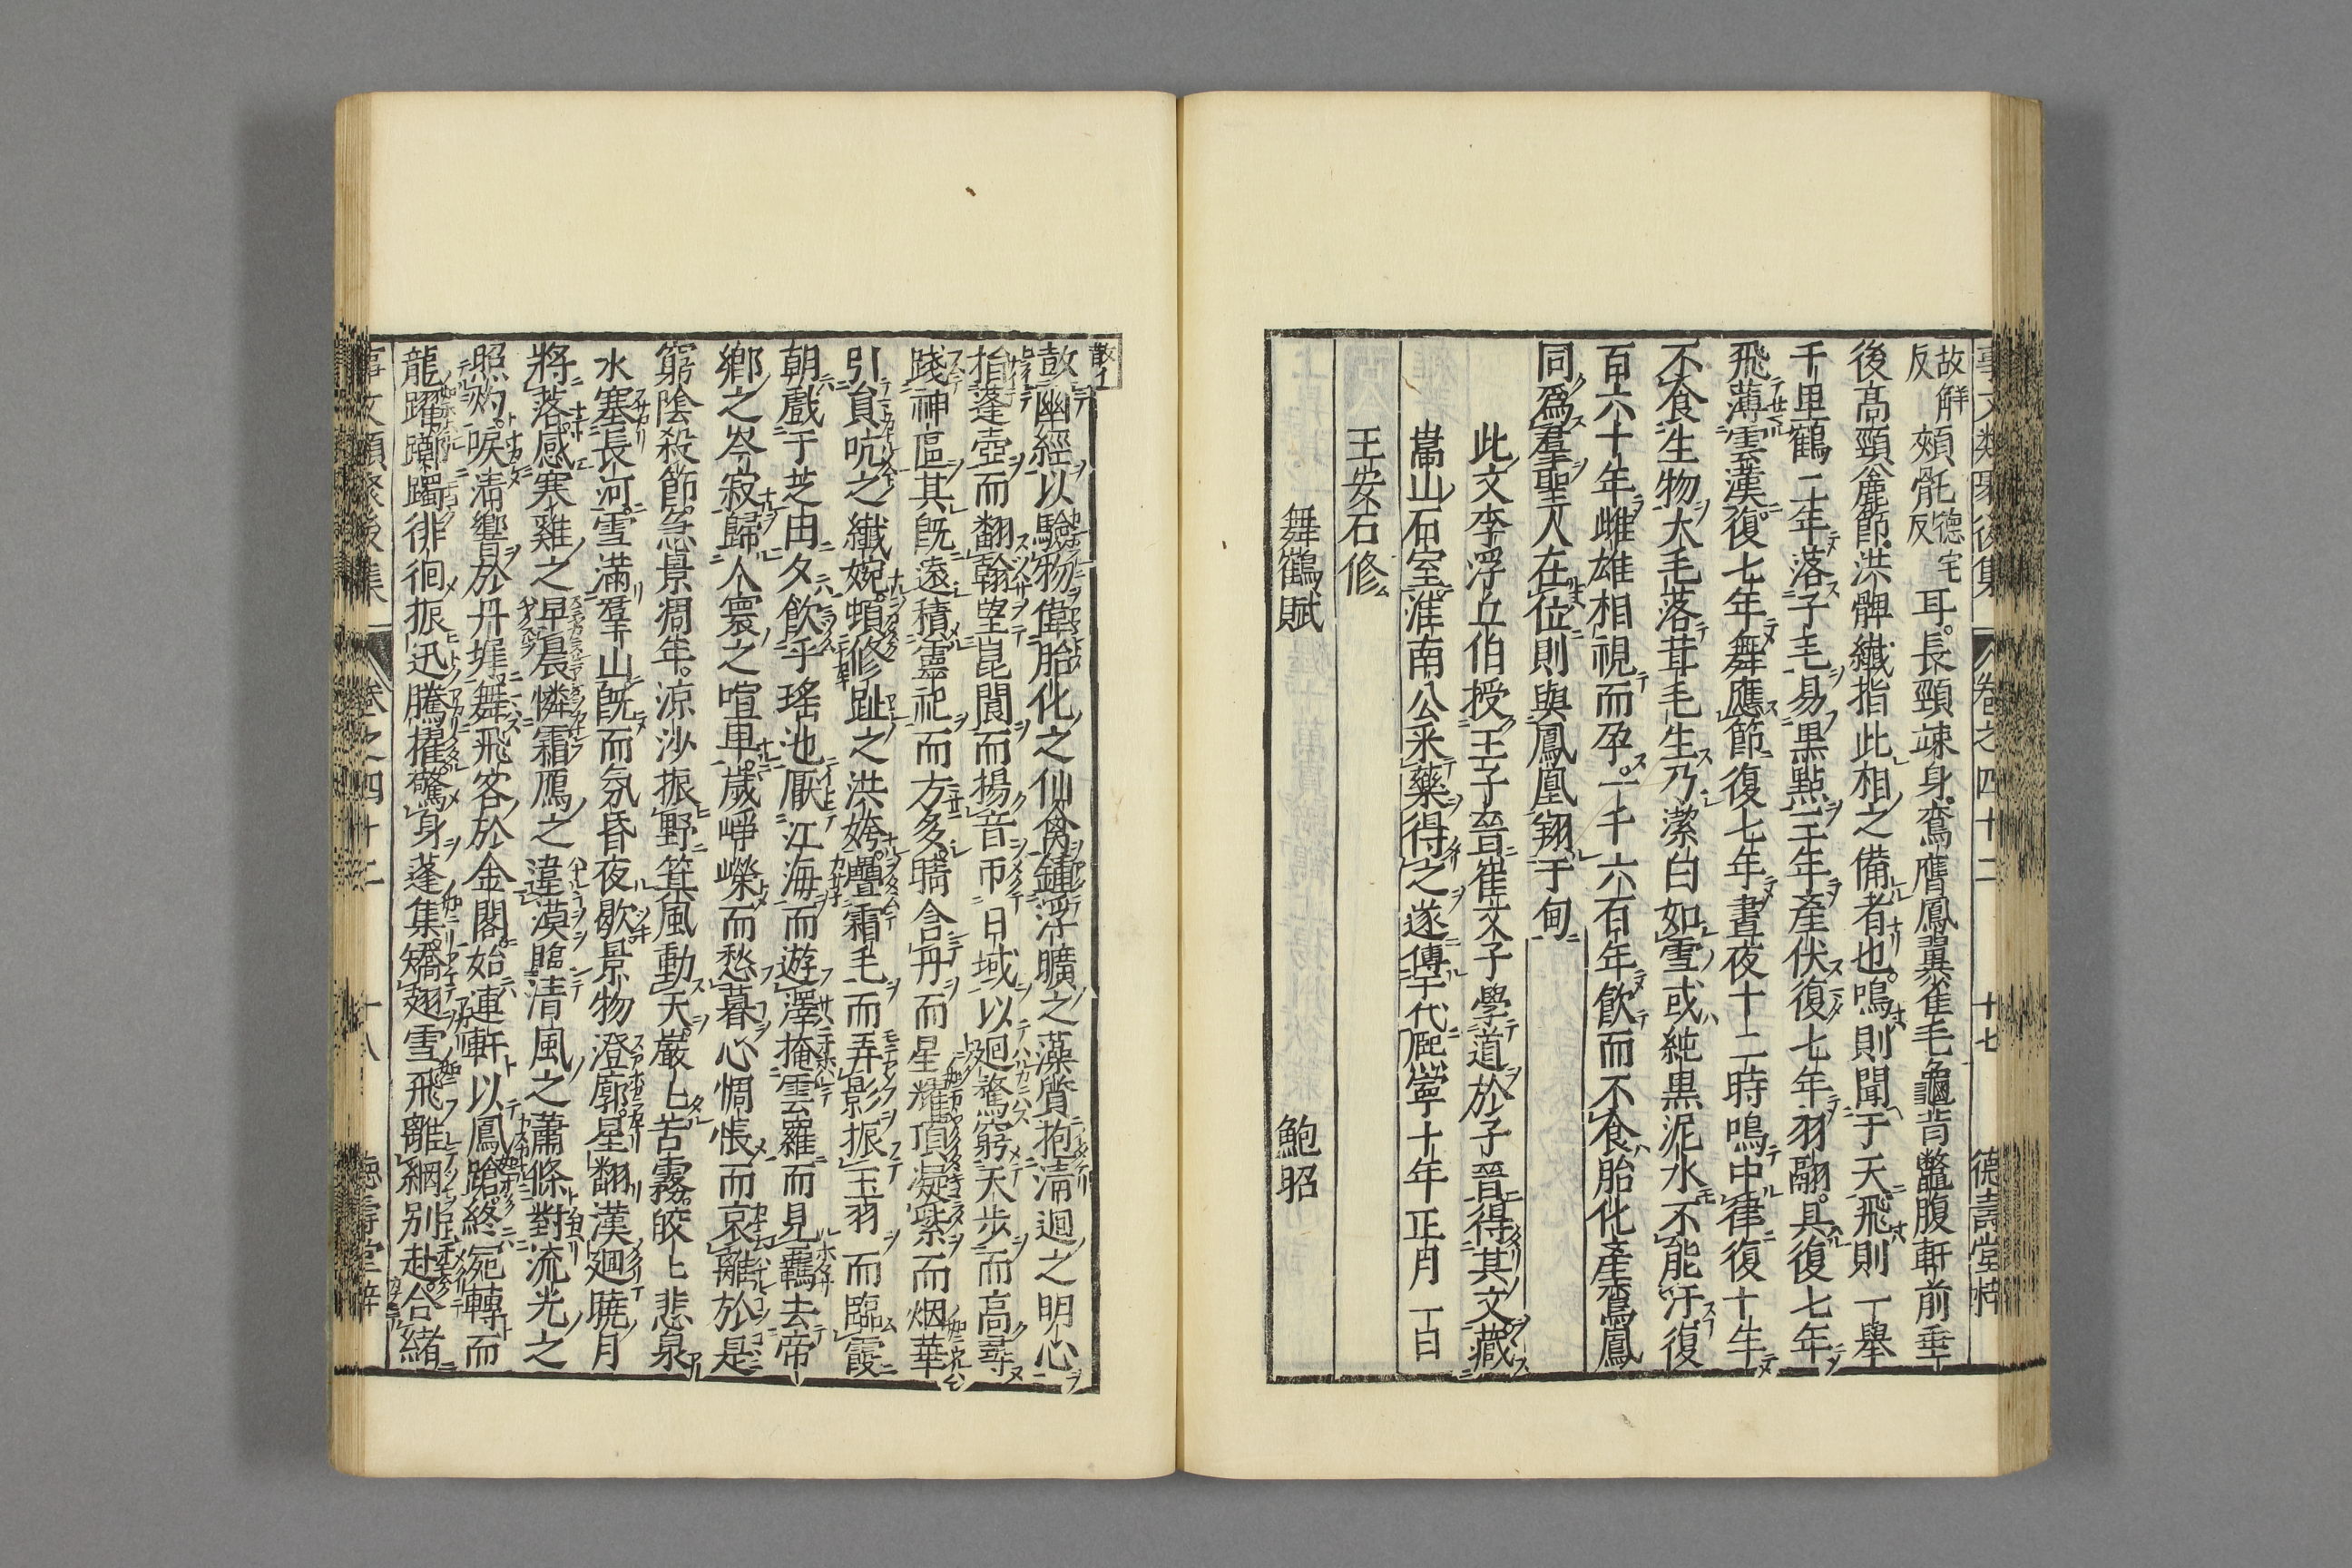 事文類聚後集 卷之四十二 十七 德壽堂梓
故解反頰骴德宅反耳長頸竦身鴦膺鳳翼雀毛龜背鼈腹軒前垂
後高頸麄節洪髀纖指此相之備者也鳴則聞于天飛則一舉
千里鶴二年落子毛易黒點三年產伏復七年羽翮具復七年
飛薄雲漢復七年舞應節復七年晝夜十二時鳴中律復十年
不食生物大毛落茸毛生乃潔白如雪或純黒泥水不能汙復
百六十年雌雄相視而孕一千六百年飲而不食胎化產鸞鳳
同爲羣聖人在位則與鳳凰翔于甸
此文李浮丘伯授王子晉崔文子學道於子晉得其文藏
嵩山石室淮南公采藥得之遂傳于代熙寧十年正月一日
王安石修
舞鶴賦 鮑昭
散幽經以驗物偉胎化之仙禽鍾浮曠之藻質抱清迥之明心
指蓬壺而翻翰望崑閬而揚音帀日域以廻鶩窮天步而高尋
踐神區其旣遠積靈祀而方多睛含丹而星耀頂凝紫而烟華
引員吭之纖婉頓修趾之洪姱疊霜毛而弄影振玉羽而臨霞
朝戲于芝田夕飲乎瑤池厭江海而遊澤掩雲羅而見羈去帝
鄉之岑寂歸人寰之喧卑歲崢嶸而愁暮心惆悵而哀離於是
窮陰殺節急景凋年涼沙振野箕風動天嚴上苦霧皎上悲泉
水塞長河雪滿羣山旣而氛昏夜歇景物澄廓星翻漢廻曉月
將落感寒雞之早晨憐霜鴈之違漠臨清風之蕭條對流光之
照灼唳清響於丹墀舞飛客於金閣始連軒以鳳蹌終宛轉而
龍躍躑躅徘徊振迅騰摧驚身蓬集矯翅雪飛離綱别赴合緒
事文類聚後集 卷之四十二 十八 德壽堂梓